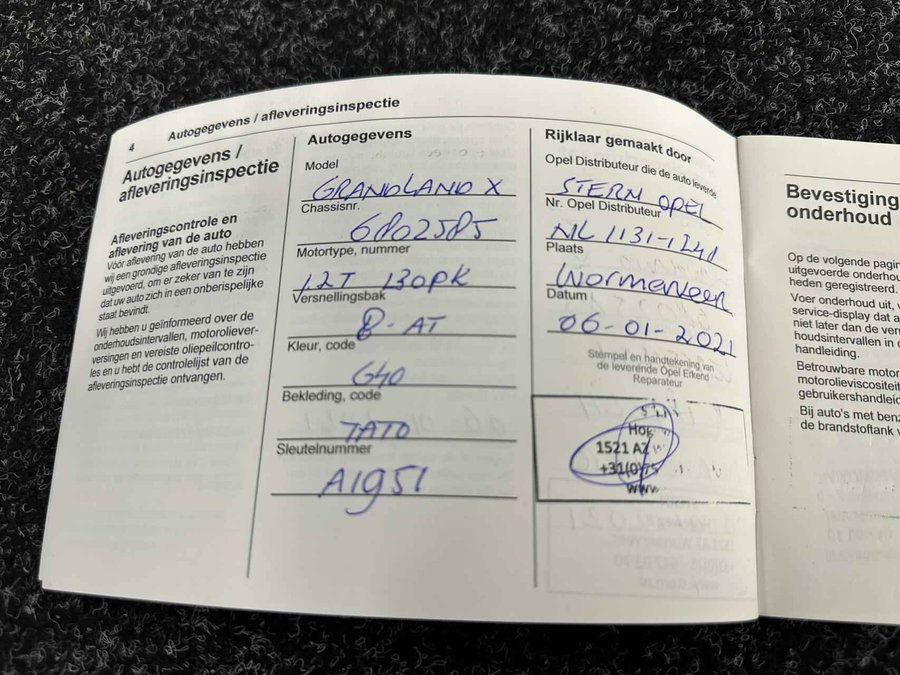 4 Autogegevens / afleveringsinspectie
Autogegevens /
afleveringsinspectie
Afleveringscontrole en
aflevering van de auto
Vóór aflevering van de auto hebben
wij een grondige afleveringsinspectie
uitgevoerd, om er zeker van te zijn
dat uw auto zich in een onberispelijke
staat bevindt.
Wij hebben u geïnformeerd over de
onderhoudsintervallen, motoroliever-
versingen en vereiste oliepeilcontro-
les en u hebt de controlelijst van de
afleveringsinspectie ontvangen.
Autogegevens
Model
GRANDLAND X
Chassisnr.
6802585
Motortype, nummer
1.2T 130PK
Versnellingsbak
8-AT
Kleur, code
G40
Bekleding, code
TATO
Sleutelnummer
A1951
Rijklaar gemaakt door
Opel Distributeur die de auto leverde
STERN OPEL
Nr. Opel Distributeur
NL 1131-1241
Plaats
Wormerveer
Datum
06-01-2021
Stempel en handtekening van
de leverende Opel Erkend
Reparateur
Hog
1521 AZ
+31(0)75
www
Bevestiging
onderhoud
Op de volgende
uitgevoerde
heden geregistreerd.
Voer onderhoud uit,
service-display dat
niet later dan de
houdsintervallen in
handleiding.
Betrouwbare
motorolieviscositeit
gebruikershandleid
Bij auto's met
de brandstoftank